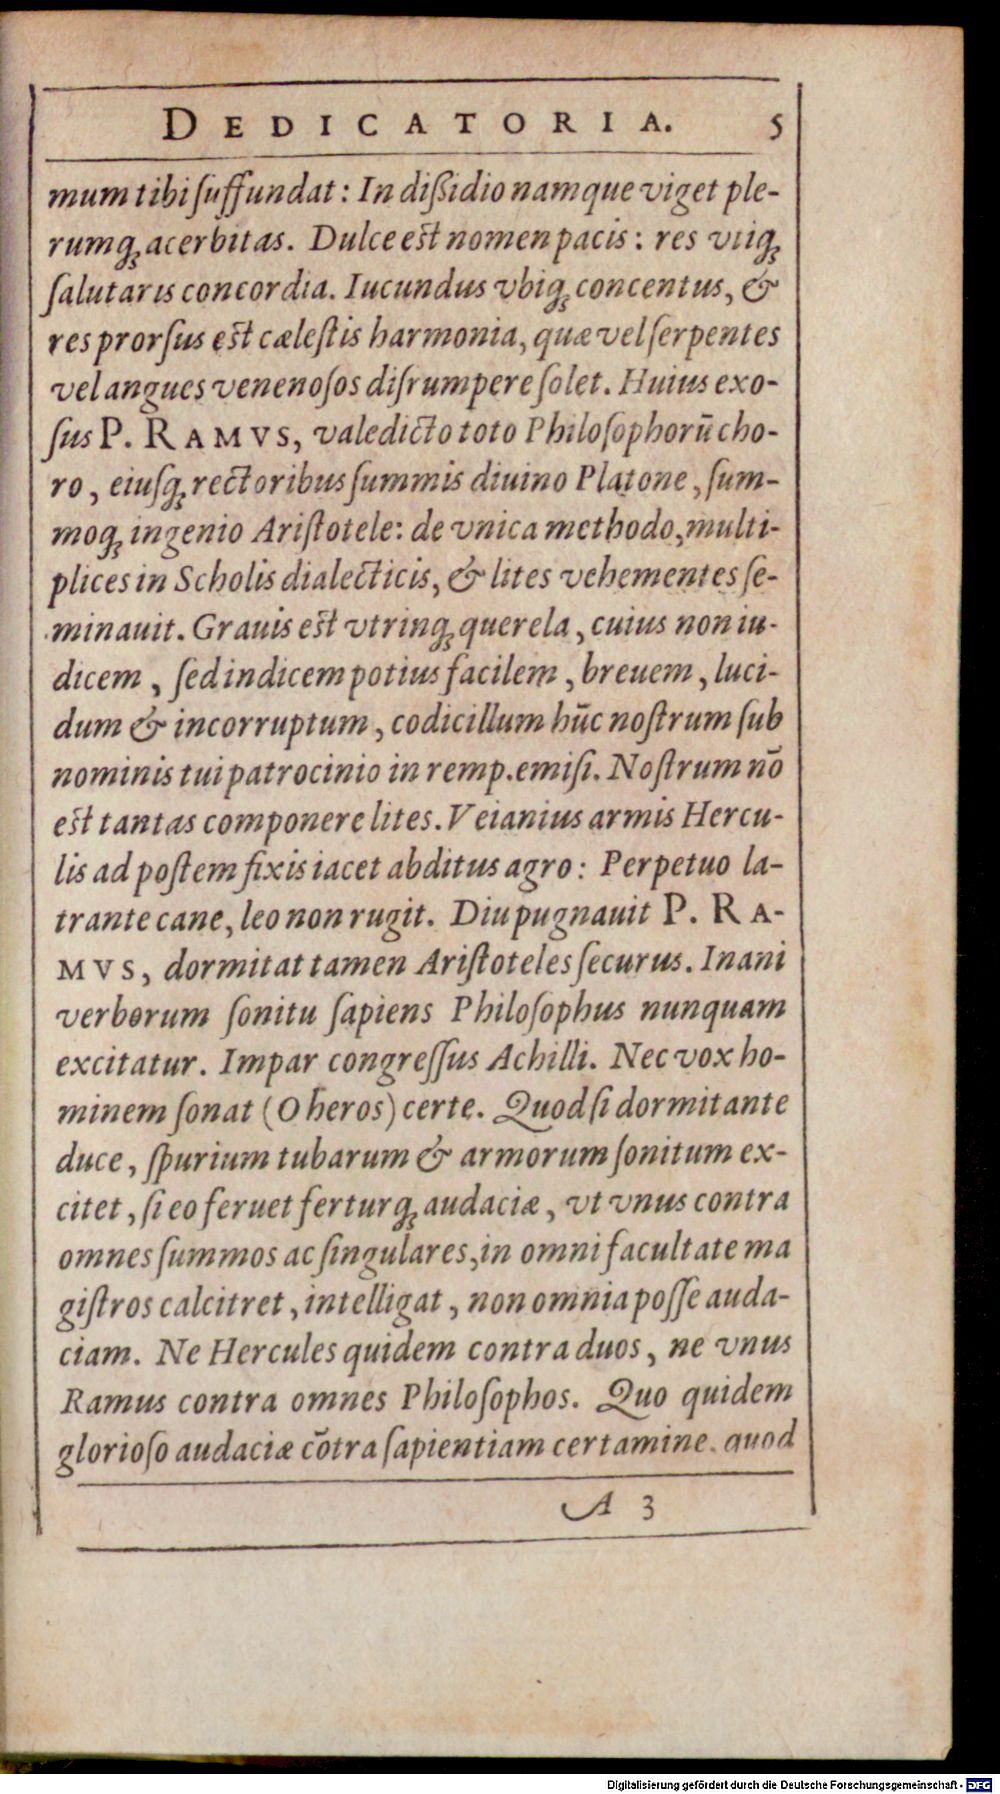 DEDICATORIA. 5
mum tibi ſuffundat: In diſſidio namque viget ple-
rumq́ꝫ acerbitas. Dulce est nomen pacis: res vtiqꝫ
ſalutaris concordia. Iucundus vbiqꝫ concentus, &
res prorſus est cæleſtis harmonia, quæ vel ſerpentes
vel angues venenoſos diſrumpere ſolet. Huius exo-
ſus P. RAMVS, valedicto toto Philoſophorū cho-
ro, eiuſqꝫ rectoribus ſummis diuino Platone, ſum-
moqꝫ ingenio Ariſtotele: de vnica methodo, multi-
plices in Scholis dialecticis, & lites vehementes ſe-
minauit. Grauis est vtrinqꝫ querela, cuius non iu-
dicem, ſed indicem potius facilem, breuem, luci-
dum & incorruptum, codicillum hūc noſtrum ſub
nominis tui patrocinio in remp. emiſi. Noſtrum nō
est tantas componere lites. Veianius armis Hercu-
lis ad poſtem fixis iacet abditus agro: Perpetuo la-
trante cane, leo non rugit. Diu pugnauit P. RA-
MVS, dormitat tamen Ariſtoteles ſecurus. Inani
verborum ſonitu ſapiens Philoſophus nunquam
excitatur. Impar congreſſus Achilli. Nec vox ho-
minem ſonat (O heros) certe. Quod ſi dormitante
duce, ſpurium tubarum & armorum ſonitum ex-
citet, ſi eo feruet ferturqꝫ audaciæ, vt vnus contra
omnes ſummos ac ſingulares, in omni facultate ma
giſtros calcitret, intelligat, non omnia poſſe auda-
ciam. Ne Hercules quidem contra duos, ne vnus
Ramus contra omnes Philoſophos. Quo quidem
glorioſo audaciæ cōtra ſapientiam certamine. quod
A 3
Digitalisierung gefördert durch die Deutsche Forschungsgemeinschaft - DFG